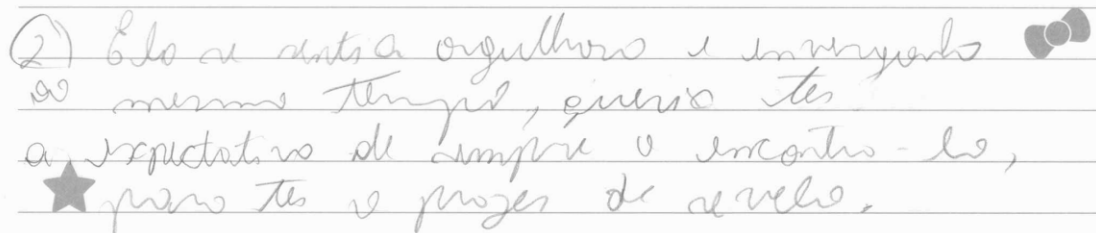 2) Ela se sentia orgulhosa e envergonhada
ao mesmo tempo, queria ter
a expectativa de sempre o encontra-lo,
para ter o prazer de revelo.